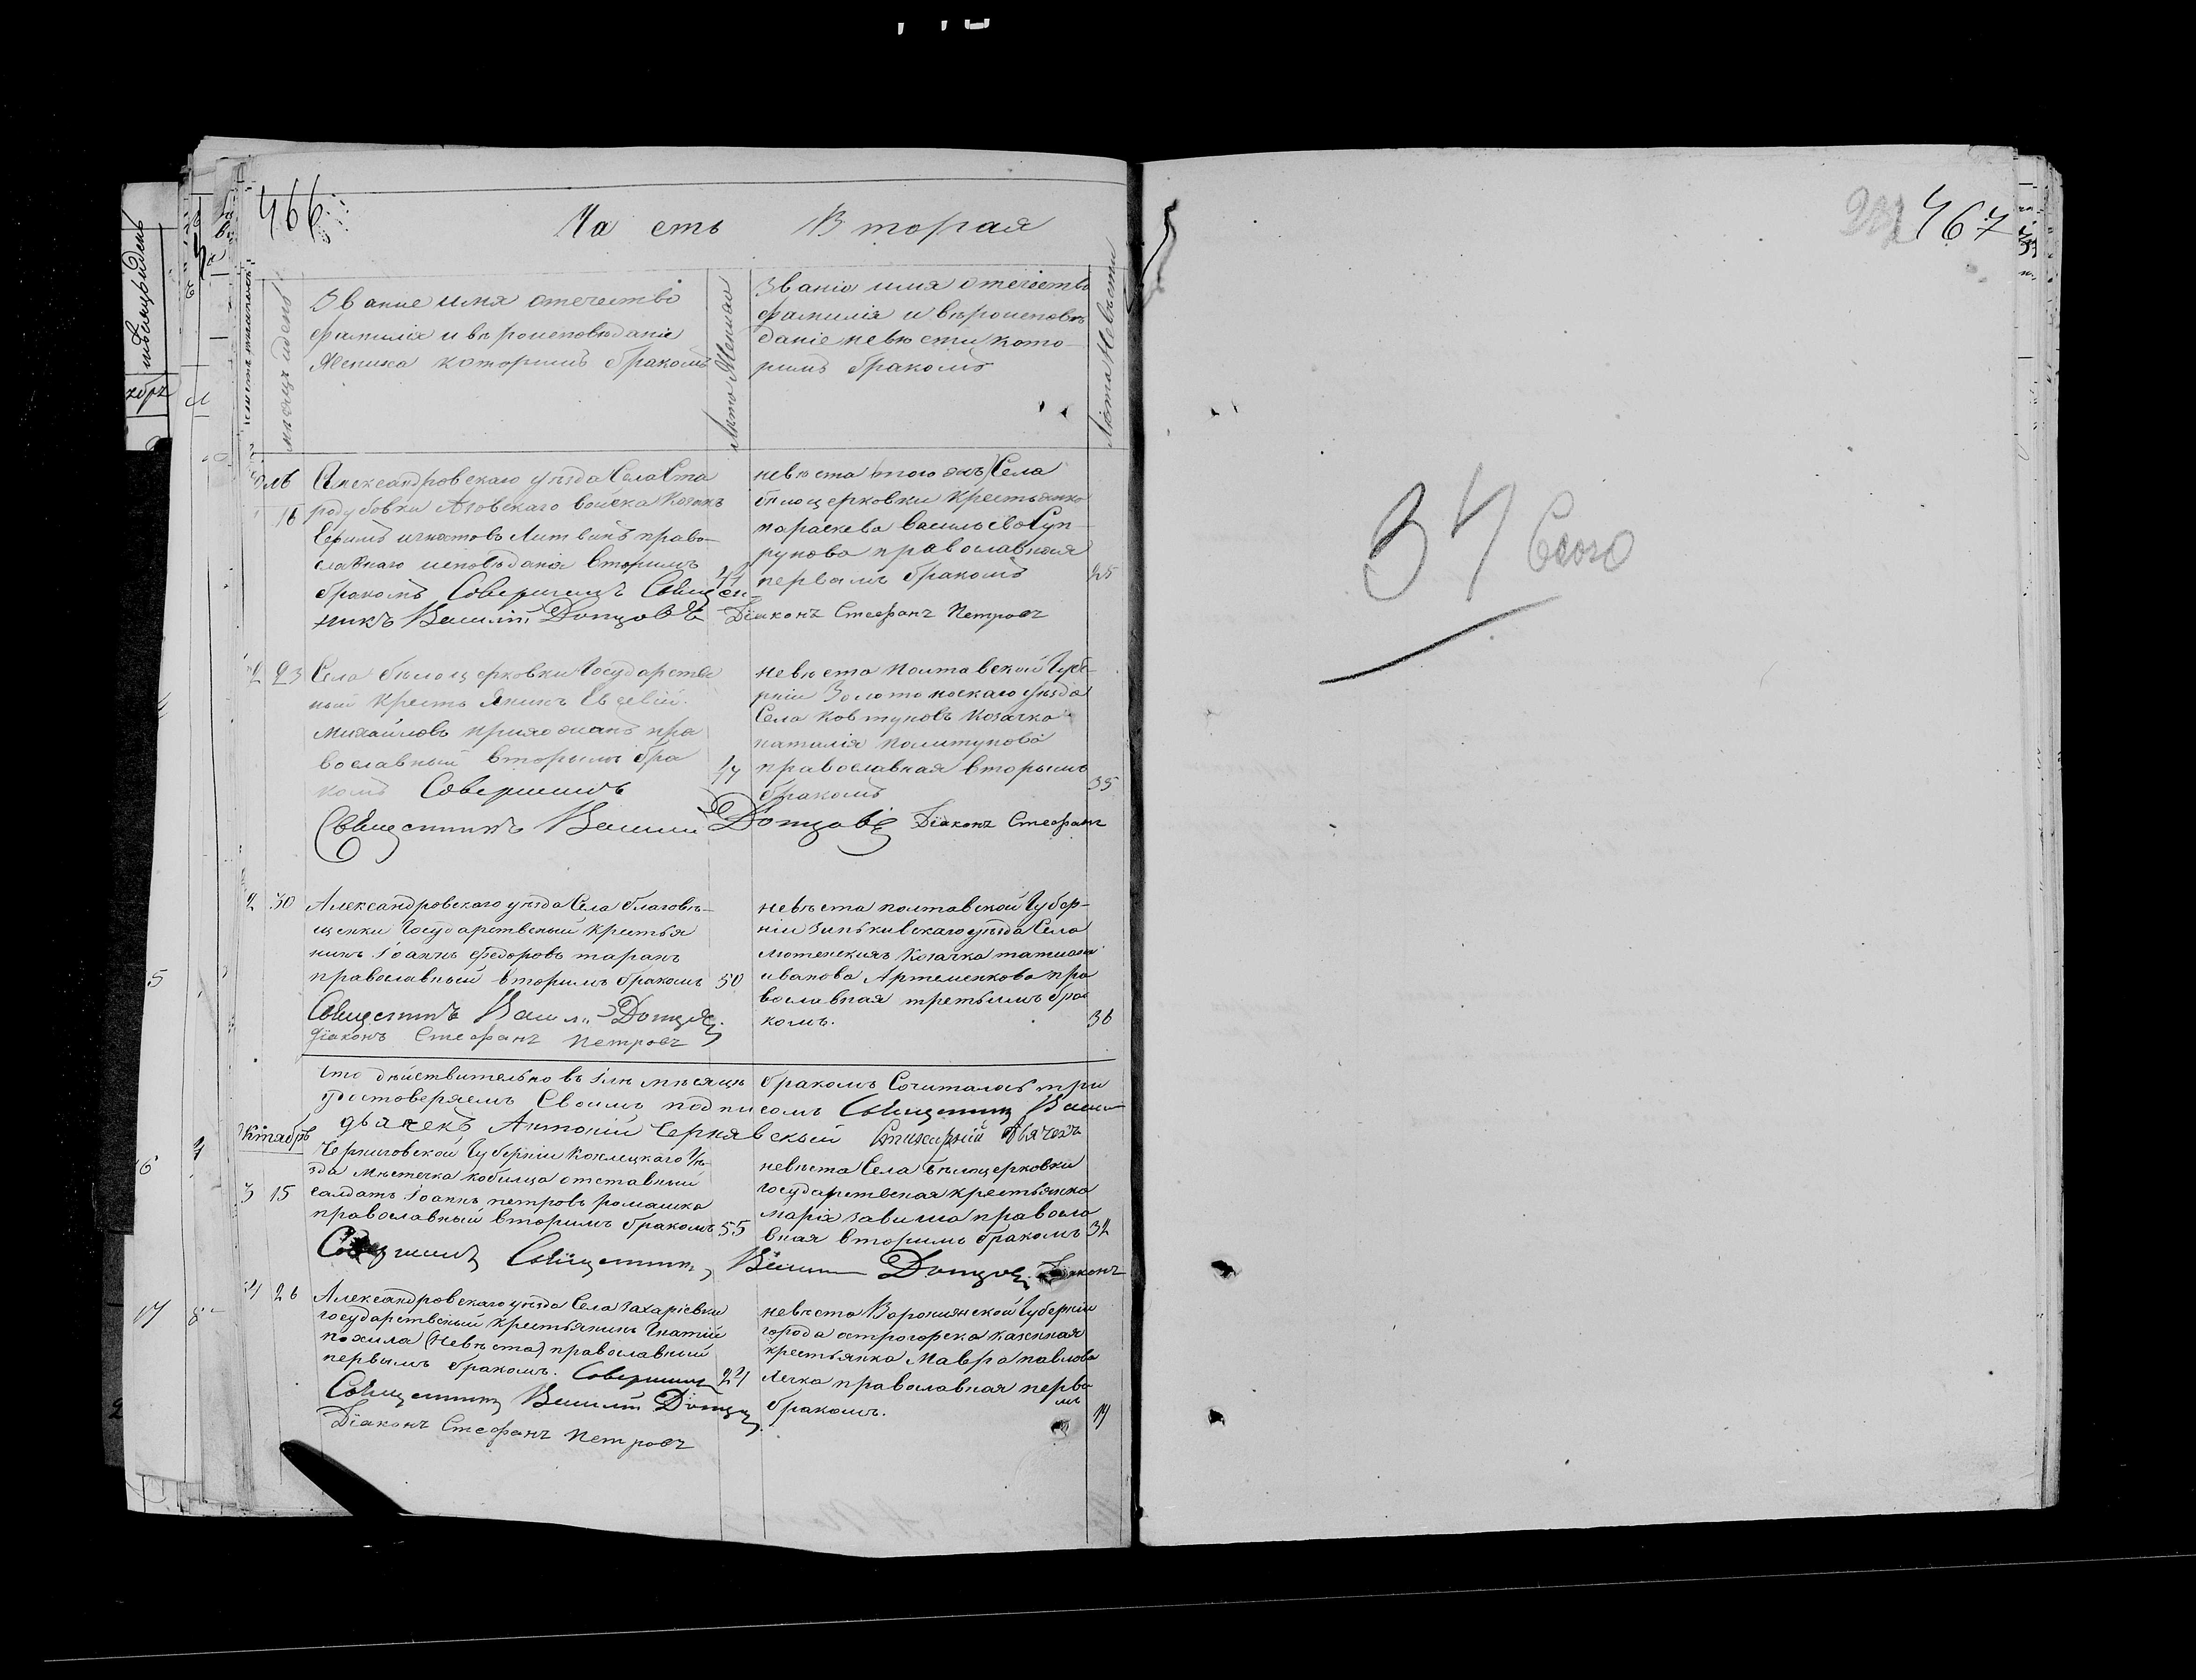 466
Часть Вторая
мѣсяцъ и день
Звание имя отечество
фамилія и вѣроисповѣданіе
Жениха которимъ бракомъ
Лѣта Жениха
Званіе имя отечество
фамилія и вѣроисповѣ
даніе невѣсти кото-
римъ бракомъ
Лѣта Невѣсти
16
Александровскаго уѣзда Села Ста
родубовки Азовскаго войска Козакъ
Ефимъ игнатовъ Литвинъ право-
славнаго исповѣданія вторимъ
бракомъ Совершилъ Священ-
никъ Василій Донцовъ
41
невѣста того жъ Села
бѣлоцерковки Крестьянка
параскева васильева Суп-
рунова православная
первымъ бракомъ
25
Діаконъ Стефанъ Петровъ
2 23
Села бѣлоцерковки Государстве
ный Крестьянинъ Евсевій
михайловъ прихожанъ пра
вославный вторымъ бра
комъ Совершилъ
47
невѣста Полтавской Губе-
рніи Золотоноскаго уѣзда
Села Ковтуновъ Козачка
наталія
православная вторымъ
бракомъ
35
Священникъ Василий Донцовъ Діаконъ Стефанъ
2 30
Александровскаго уѣзда Села благовѣ-
щенки Государственый Крестья
нинъ Іоаннъ федоровъ таранъ
православный вторимъ бракомъ 50
Священникъ Васил Донцовъ
Діаконъ Стефанъ Петровъ
невѣста полтавской Губер-
ніи Зиньковскаго уѣзда Села
лютенскихъ Козачка татиана
иванова Артеменкова пра
вославная третьимъ бра
комъ.
36
что дѣйствительно въ Ілѣ мѣсяцѣ бракомъ Сочиталось три
удостоверяемъ Своимъ подписомъ Священникъ Васил
дьачекъ Антоній Чернявскый Стихарній Дьячекъ
Октябрь
3 15
Черниговской Губерніи Козлецкаго Уѣ-
зда Мѣстечка кобижча отставный
салдатъ Іоаннъ петровъ ромашка
православный вторимъ бракомъ 55
невѣста Села бѣлоцерковки
государственая крестьянка
марія православ
вная вторимъ бракомъ 32
Совершилъ Священникъ Васил Донцовъ Діаконъ
4 26
Александровскаго уѣзда Села захаріевки
государственый крестьянинъ Игнатій
похила (Невѣста) православный
первымъ бракомъ. Совершилъ 24
Священникъ Василій Донцовъ
Діаконъ Стефанъ Петровъ
невѣста Воронижской Губерніи
города острогорска казенная
крестьянка Мавра павлова
православная перва
мъ
бракомъ.
19
467
34 Всего